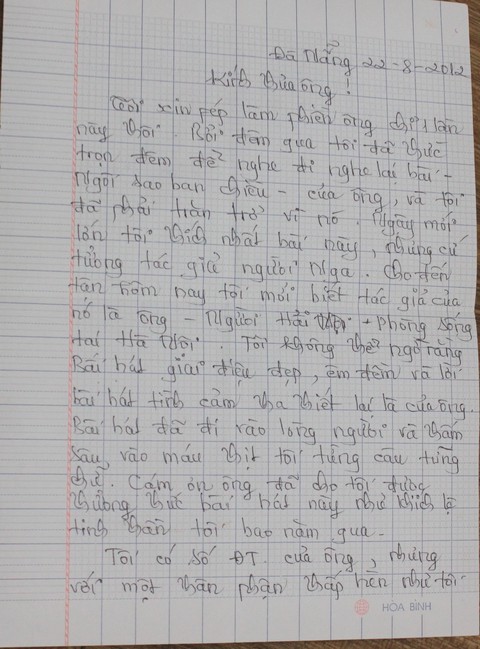 Đà Nẵng 22-8-2012
Kính thưa ông!
Tôi xin phép làm phiền ông chỉ 1 lần
này thôi. Bởi đêm qua tôi đã thức
trọn đêm để nghe đi nghe lại bài -
Ngôi sao ban chiều - của ông, và tôi
đã phải trằn trở vì nó. Ngày mới
lớn tôi thích nhất bài này, nhưng cứ
tưởng tác giả người Nga. Cho đến
tận hôm nay tôi mới biết tác giả của
nó là ông - Người Hải + phòng sống
tại Hà Nội. Tôi không thể ngờ rằng
Bài hát giai điệu đẹp, êm đềm và lời
bài hát tình cảm tha thiết lại là của ông.
Bài hát đã đi vào lòng người và thấm
sâu vào máu thịt tôi từng câu từng
chữ. Cám ơn ông đã cho tôi được
thưởng thức bài hát này như khích lệ
tinh thần tôi bao năm qua -
Tôi có số ĐT. của ông, nhưng
với một thân phận thấp hèn như tôi
HÒA BÌNH